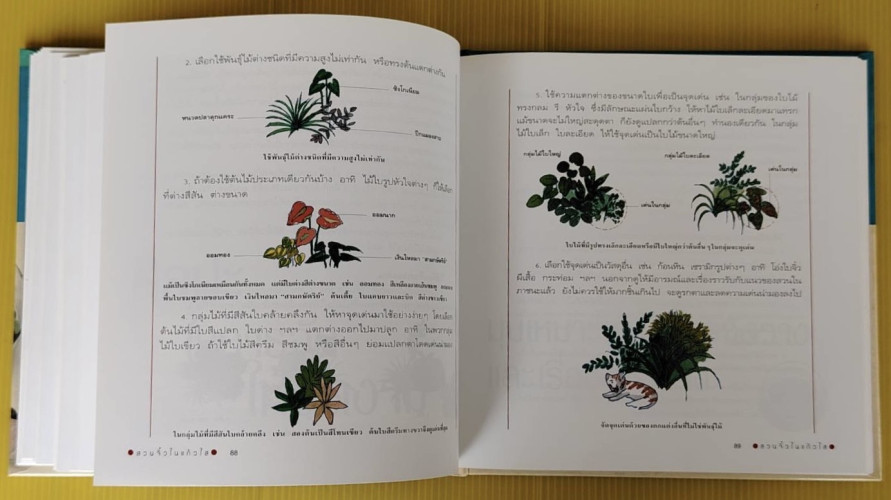 2. เลือกใช้พันธุ์ไม้ต่างชนิดที่มีความสูงไม่เท่ากัน หรือทรงต้นแตกต่างกัน
ซิงโกเนียม
หนวดปลาดุกแคระ
ริกแดงสาบ
ใช้พันธุ์ไม้ต่างชนิดที่มีความสูงไม่เท่ากัน
3. ถ้าต้องใช้ต้นไม้ประเภทเดียวกันบ้าง อาทิ ไม้ใบรูปหัวใจต่างๆ ก็ให้เลือก
ที่ต่างสีสัน ต่างขนาด
ออมนาก
ออมทอง
เงินไหลมา "สามกษัตริย์"
แม้เป็นซิงโกเนียมเหมือนกันทั้งหมด แต่มีใบต่างสีต่างขนาด เช่น ออมทอง สีเหลือง
พื้นใบชมพูลายขอบเขียว เงินไหลมา "สามกษัตริย์" ต้นเตี้ย
4. กลุ่มไม้ที่มีสีสันใบคล้ายคลึงกัน ให้หาจุดเด่นมาใช้อย่างง่ายๆ โดยเลือก
ต้นไม้ที่มีใบสีแปลก ใบด่าง ฯลฯ แตกต่างออกไปมาปลูก อาทิ ในสวนกลุ่ม
ไม้ใบเขียว ถ้าใช้ใบไม้สีครีม สีชมพู หรือสีอื่นๆ ย่อมแปลกตาโดดเด่น
ในกลุ่มไม้ที่มีสีสันใบคล้ายคลึง เช่น สองต้นเป็นสีโทนเขียว ต้นใบสีครีมกลางขาวจึงดูเด่นที่สุด
สวนจิ๋วในแก้วใส 88
5. ใช้ความแตกต่างของขนาดใบเพื่อเป็นจุดเด่น เช่น ในกลุ่มของใบไม้
ทรงกลม รี หัวใจ ซึ่งมีลักษณะแผ่นใบกว้าง ให้หาไม้ใบเล็กละเอียดมาแทรก
แม้ขนาดจะไม่ใหญ่สะดุดตา ก็ยังดูแปลกกว่าต้นอื่นๆ ทำนองเดียวกัน ในกลุ่ม
ไม้ใบเล็ก ใบละเอียด ให้ใช้จุดเด่นเป็นใบไม้ขนาดใหญ่
กลุ่มไม้ใบใหญ่
กลุ่มไม้ใบละเอียด
เด่นในกลุ่ม
เด่นในกลุ่ม
ใบไม้ที่มีรูปทรงเล็กละเอียดหรือมีใบใหญ่กว่าต้นอื่นๆในกลุ่มจะดูเด่น
6. เลือกใช้จุดเด่นเป็นวัสดุอื่น เช่น ก้อนหิน เซรามิกรูปต่างๆ อาทิ โอ่งใบจิ๋ว
ผีเสื้อ กระท่อม ฯลฯ นอกจากดูให้มีอารมณ์และเรื่องราวรับกับแนวของสวนใน
ภาชนะแล้ว ยังไม่ควรใช้ให้มากชิ้นเกินไป จะดูรกตาและลดความเด่นน่ามองลงไป
จัดจุดเด่นด้วยของตกแต่งอื่นที่ไม่ใช่พันธุ์ไม้
89 สวนจิ๋วในแก้วใส